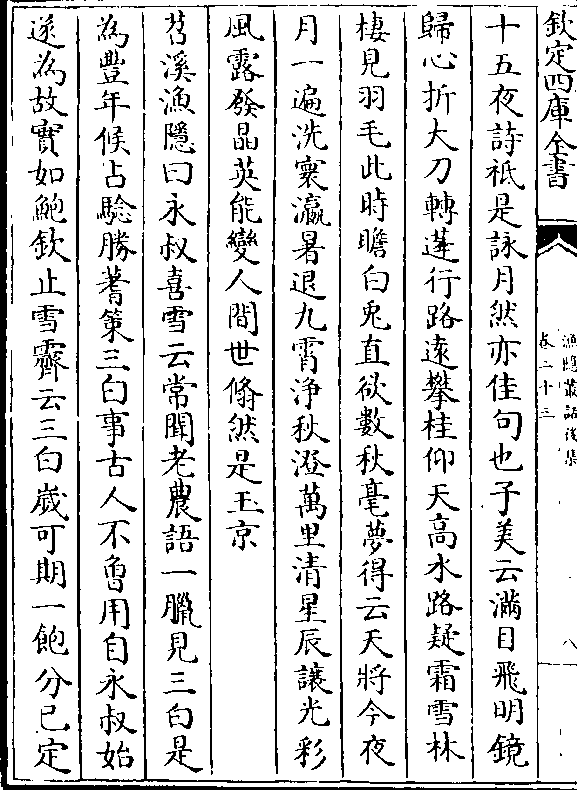 欽定四庫全書
漁隱叢話後集
卷二十三
八
十五夜詩祗是詠月然亦佳句也子美云滿目飛明鏡
歸心折大刀轉蓬行路遠攀桂仰天高水路疑霜雪林
棲見羽毛此時瞻白兎直欲數秋毫夢得云天將今夜
月一遍洗寰瀛暑退九霄淨秋澄萬里清星辰讓光彩
風露發晶英能變人間世翛然是玉京
苕溪漁隱曰永叔喜雪云常聞老農語一臘見三白是
為豐年候占驗勝蓍策三白事古人不曾用自永叔始
遂為故實如鮑欽止雪霽云三白嵗可期一飽分已定